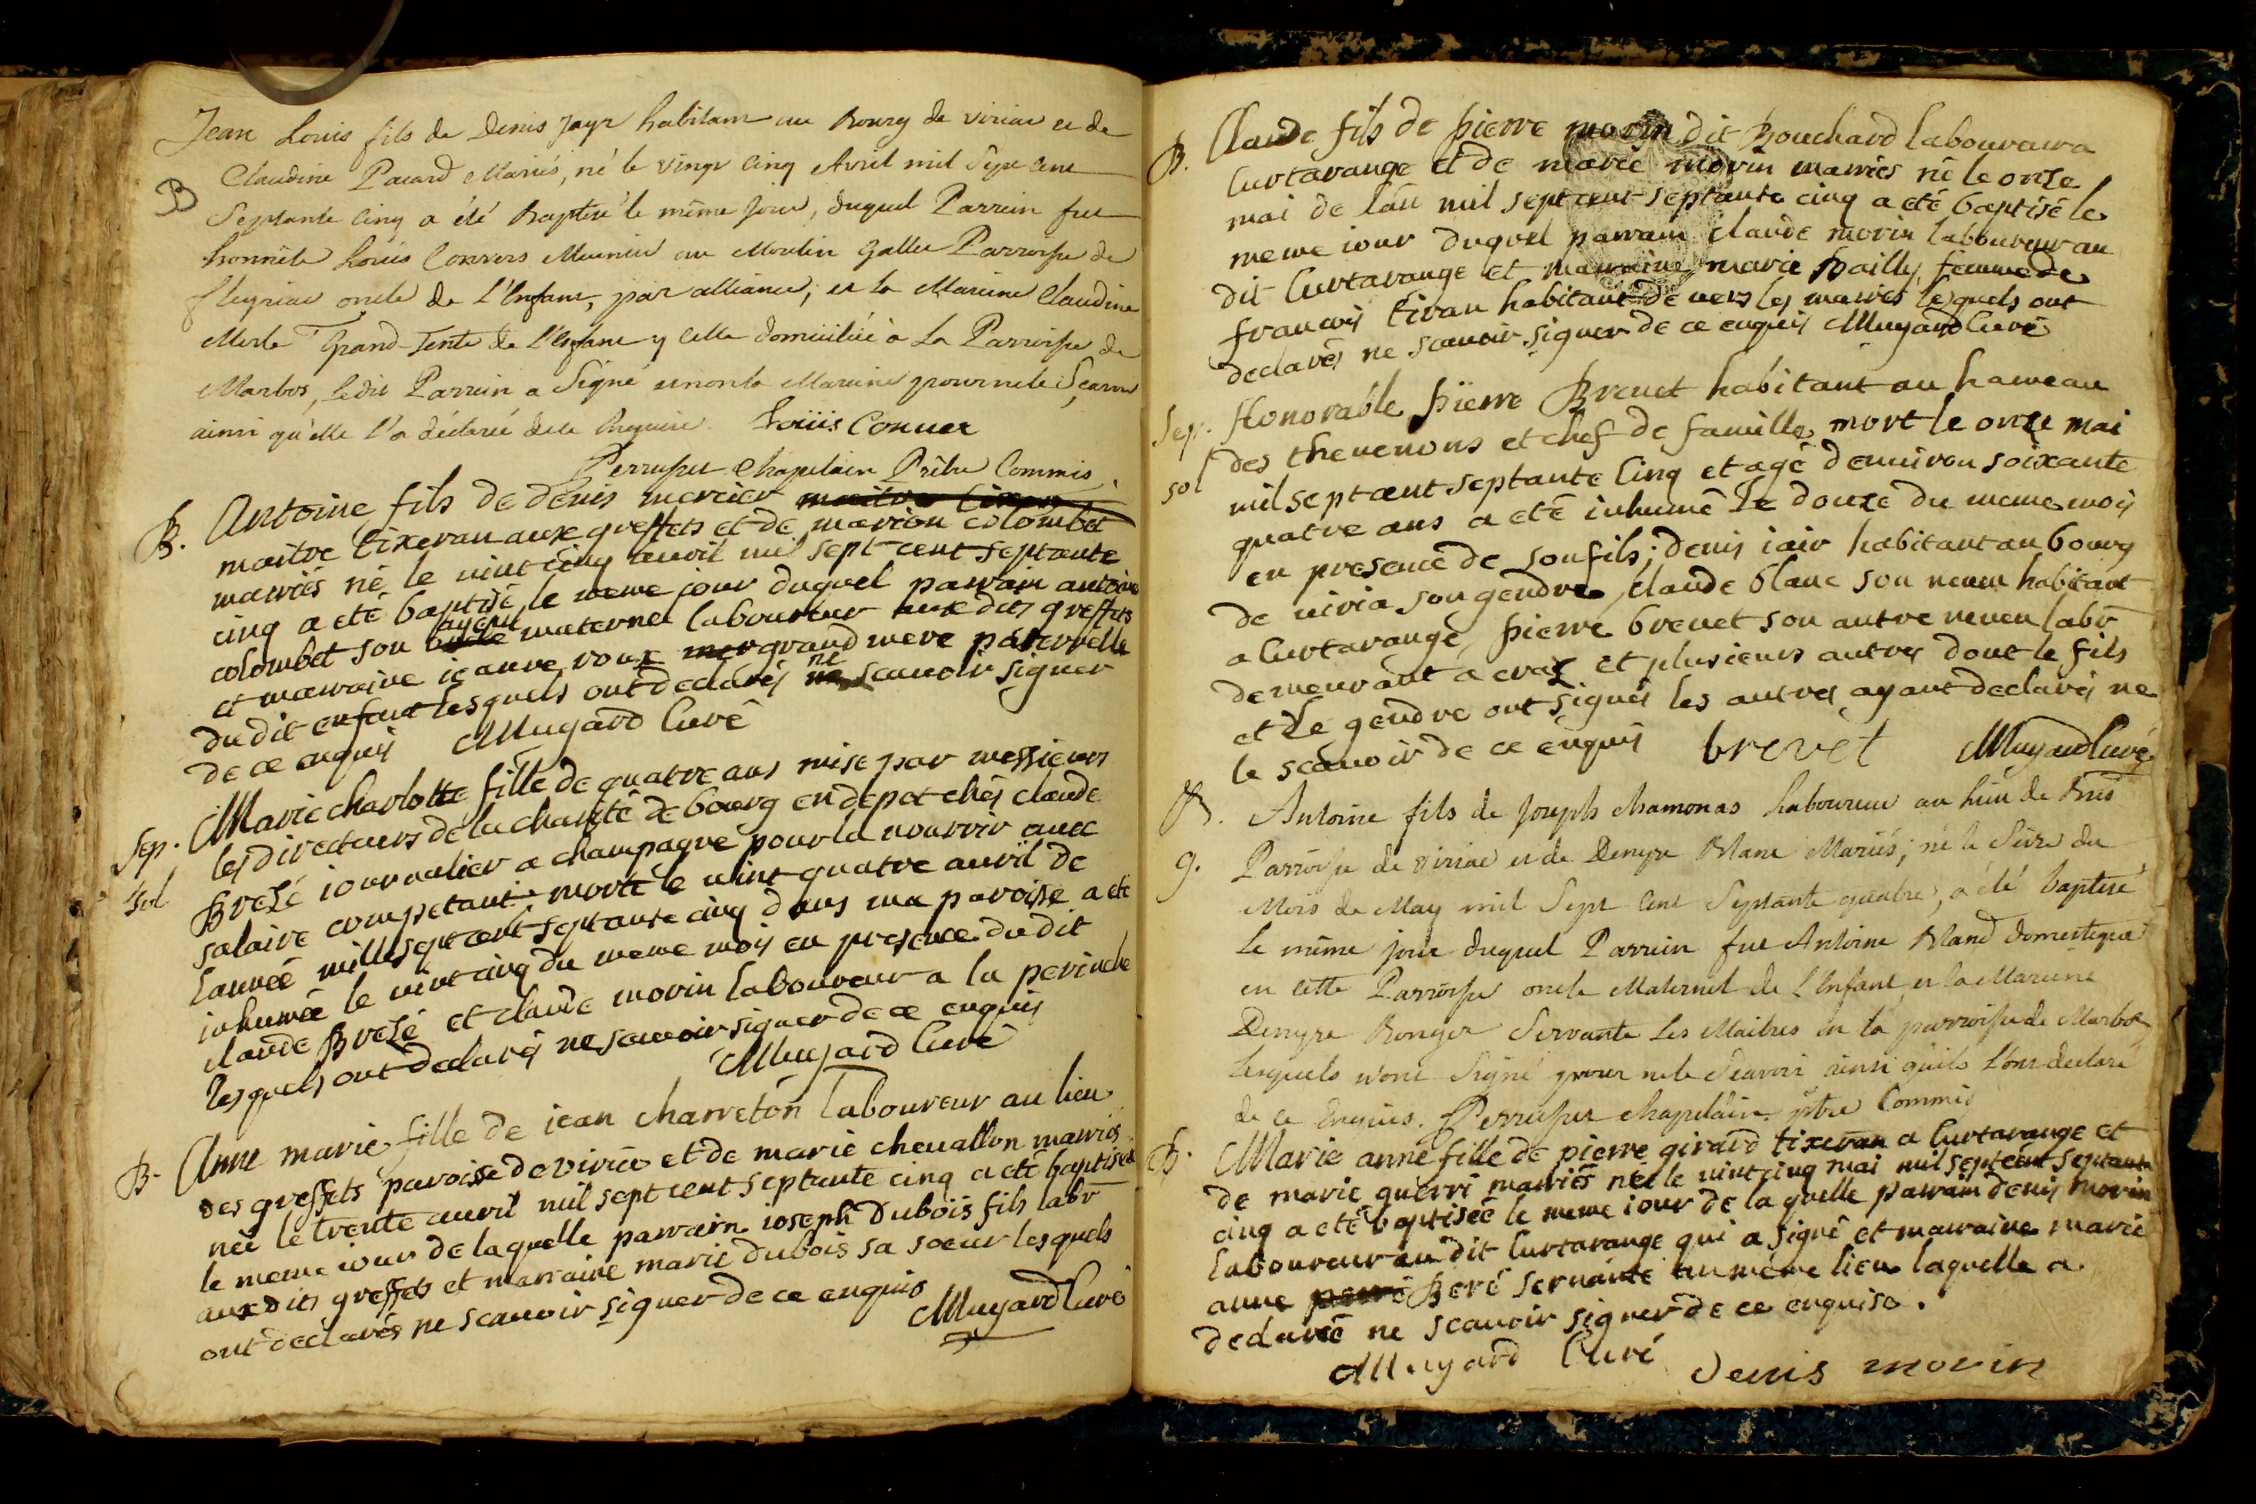 Jean Louis fils de Denis Jayr habitant au Bourg de viriac et de
B
Claudine Pacard Mariés, né le vingt cinq Avril mil Sept Cent
Septante Cinq a été Baptisé le même jour, duquel Parrein fut
honnête Louis Convers Meunier au Moulin Gallet Parroisse de
fleyriac oncle de L'Enfant, par alliance, et la Mareine Claudine
Merle Grand-Tente de L'Enfant y celle domiciliée à La Parroisse de
Marbos, ledit Parrein a Signé et non la Mareine pour ne le Scavoir
ainsi qu'elle l'a déclaré de ce Enquise. Loüis Conuer
Perrusset Chapelain Prêtre Commis
B. Antoine fils de denis mercier maitre tixeran
maitre tixeran aux greffets et de marion colombet
mariés né le uint cinq auril mil sept cent septante
cinq a eté baptisé le meme jour duquel parrain antoine
colombet son oncle ayeul maternel laboureur aux dits greffets
et marraine ieanne roux mer grand mere paternelle
du dit enfant lesquels ont declarés ne ne scauoir signer
de ce enquis Mugard Curé
Sep. Marie charlotte fille de quatre ans mise par messieurs
les directeurs de la charité de bourg en depot chés claude
sol Brezé iournalier a champagne pour la nourrir auec
salaire competant morte le uint quatre auril de
lanneé mille sept cent septante cinq dans ma paroisse a eté
inhumeé le uint cinq du meme mois en presence du dit
claude Brezé et claude morin laboureur a la perinche
lesquels ont declarés ne scauoir signer de ce enquis
Mugard Curé
B. Anne marie fille de jean charreton laboureur au lieu
des greffets paroisse de viria et de marie cheuallon mariés
neé le trente auril mil sept cent septante cinq a eté baptiseé
le meme iour de laquelle parrain ioseph dubois fils labr
aux dits greffets et marraine marie dubois sa soeur lesquels
ont declarés ne scauoir signer de ce enquis
Mugard Curé
B. Claude fils de pierre morin dit Bouchard laboureur a
Curtarange et de marie morin mariés né le onze
mai de lan mil sept cent septante cinq a eté baptisé le
meme iour duquel parrain claude morin laboureur au
dit Curtarange et marraine marie pailly femme de
francois tiran habitant de uers les mariés lesquels ont
declarés ne scauoir signer de ce enquis Mugard Curé
Sep. Honorable pierre Breuet habitant au hameau
des theuenons et chef de famille mort le onze mai
sol mil sept cent septante cinq et agé denuiron soixante
quatre ans a eté inhumé le douze du meme mois
en presence de son fils; denis iair habitant au bourg
de uiria son gendre, claude blanc son neueu habitant
a Curtarange, pierre breuet son autre neueu labr
demeurant a craz et plusieurs autres dont le fils
et le gendre ont signés les autres ayant declarés ne
le scauoir de ce enquis brevet Mugard Curé
B. Antoine fils de Joseph chamonas Laboureur au lieu de
g. Parroisse de viriac et de Denyse Blanc Mariés, né le Seize du
Mois de May mil Sept Cent Septante quatre, a été baptisé
Le même jour duquel Parrein fut Antoine Bland Domestique
en cette Parroisse oncle Maternel de L'Enfant, et la Mareine
Denyse Ronger Servante Les Maitres en la parroisse de Marbos
Lesquels n'ont Signé pour ne le Scavoir ainsi qu'ils L'ont declaré
de ce Enquis. Perrusset chapelain ptre Commis
B. Marie anne fille de pierre girard tixeran a Curtarange et
de marie guerri mariés neé le uint cinq mai mil sept cent septante
cinq a eté baptiseé le meme iour de laquelle parrain denis morin
laboureur au dit Curtarange qui a signé et marraine marie
anne Beré seruante au même lieu laquelle a
declareé ne scauoir signer de ce enquise.
Mugard Curé denis morin